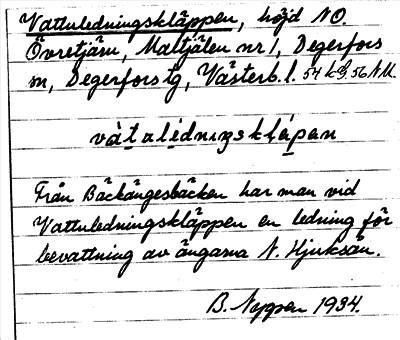 Vattuledningskläppen, höjd NO.
Övretjärn, Maltjälen nr 1, Degerfors
sn, Degerfors tg, Västerb. l. 54
vàtalèdnıŋsklápan
Från Bäckängesbäcken har man vid
Vattuledningskläppen en ledning för
bevattning av ängarna N. Hjuksån.
B. Nyper 1934.